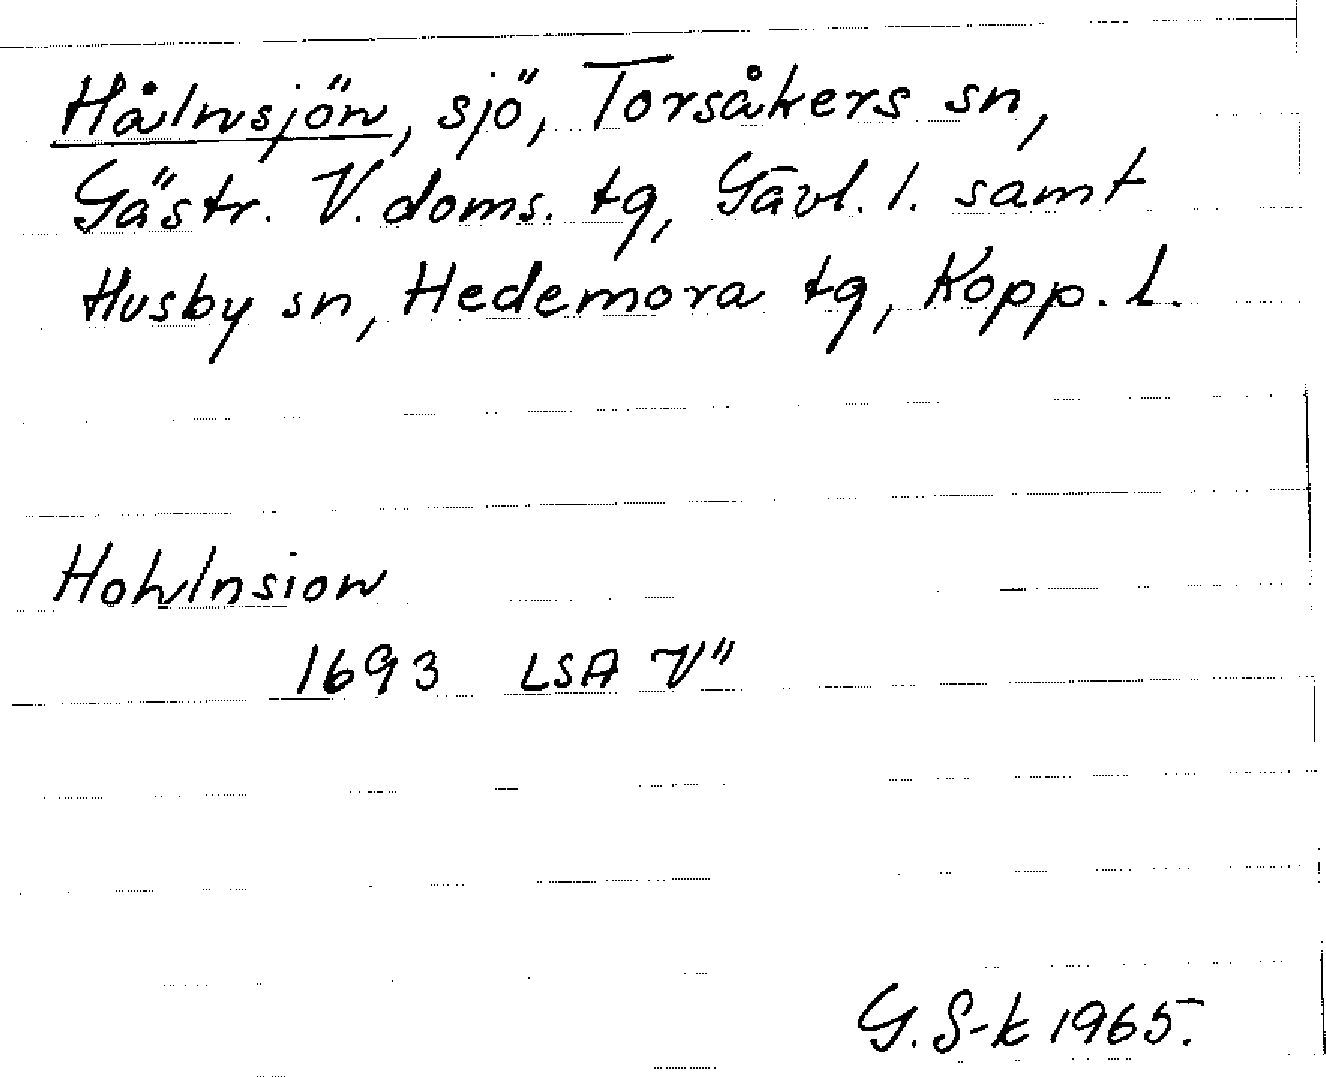 Hålnsjön, sjö, Torsåkers sn,
Gästr. V. doms. tg, Gävl. l. samt
Husby sn, Hedemora tg, Kopp. l.
Hohlnsion
1693 LSA V"
G. S-k 1965.